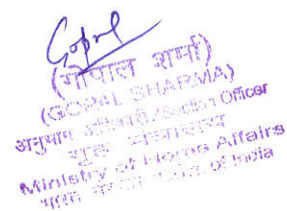 Gopal
(गोपाल शर्मा)
(GOPAL SHARMA)
अनुभाग अधिकारी/Section Officer
गृह मंत्रालय
Ministry of Home Affairs
भारत सरकार of India